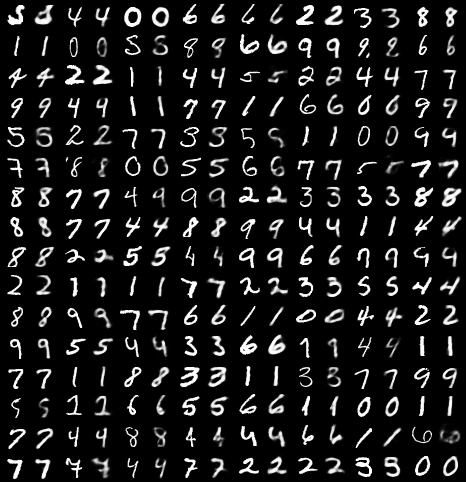 5 5 4 4 0 0 6 6 6 6 2 2 3 3 8 8
1 1 0 0 5 5 8 8 6 6 9 9 9 9 6 6
4 4 2 2 1 1 4 4 5 5 2 2 4 4 7 7
9 9 4 4 1 1 7 7 1 1 6 6 0 0 9 9
5 5 2 2 7 7 3 3 5 5 1 1 0 0 9 9
7 7 8 8 0 0 5 5 6 6 7 7 5 7 7
8 8 7 7 4 9 9 9 2 2 3 3 3 3 8 8
8 8 7 7 4 4 8 8 9 9 4 4 1 1 4 4
8 8 2 2 5 5 4 4 9 9 6 6 7 9 9 9
2 2 1 1 1 1 7 7 2 2 3 3 5 5 4 4
8 8 9 9 7 7 6 6 1 1 0 0 4 4 2 2
9 9 5 5 4 4 3 3 6 6 1 1 4 4 1 1
7 7 1 1 8 8 3 3 1 1 3 3 7 7 9 9
5 5 2 2 6 6 5 5 6 6 1 1 0 0 1 1
7 7 4 4 8 8 4 4 4 4 6 6 1 1 6
7 7 7 7 4 4 7 7 2 2 2 2 3 5 0 0